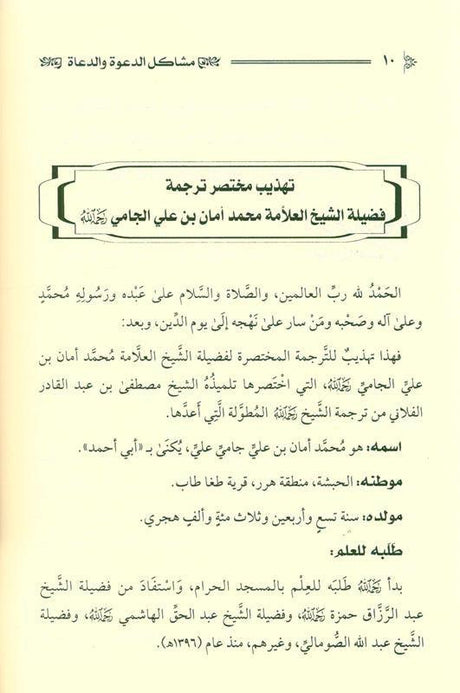 ١٠ مشاكل الدعوة والدعاة
تهذيب مختصر ترجمة
فضيلة الشيخ العلاَّمة محمد أمان بن علي الجامي رحمه الله
الحَمْدُ لله ربِّ العالمين، والصَّلاة والسَّلام علىٰ عَبْده ورَسُولِهِ مُحمَّدٍ
وعلىٰ آله وصَحْبه ومَنْ سار علىٰ نَهْجه إلَىٰ يوم الدِّين، وبعد:
فهذا تهذيبٌ للتَّرجمة المختصرة لفضيلة الشَّيخ العلَّامة مُحمَّد أمان بن
عليِّ الجاميِّ رحمه الله، التي اخْتَصرها تلميذُهُ الشيخ مصطفىٰ بن عبد القادر
الفلاني من ترجمة الشَّيخ رحمه الله المُطوَّلة الَّتِي أَعدَّها.
اسمه: هو مُحمَّد أمان بن عليِّ جاميِّ عليِّ، يُكنَىٰ بـ «أبي أحمد».
موطنه: الحبشة، منطقة هرر، قرية طغا طاب.
مولده: سنة تسعٍ وأربعين وثلاث مئةٍ وألفٍ هجري.
طَلَبه للعلم:
بدأ رحمه الله طَلَبَه للعِلْم بالمسجد الحرام، وَاسْتفَادَ من فضيلة الشَّيخ
عبد الرَّزَّاق حمزة رحمه الله، وفضيلة الشَّيخ عبد الحقِّ الهاشمي رحمه الله، وفضيلة
الشَّيخ عبد الله الصُّوماليِّ، وغيرهم، منذ عام (١٣٩٦هـ).